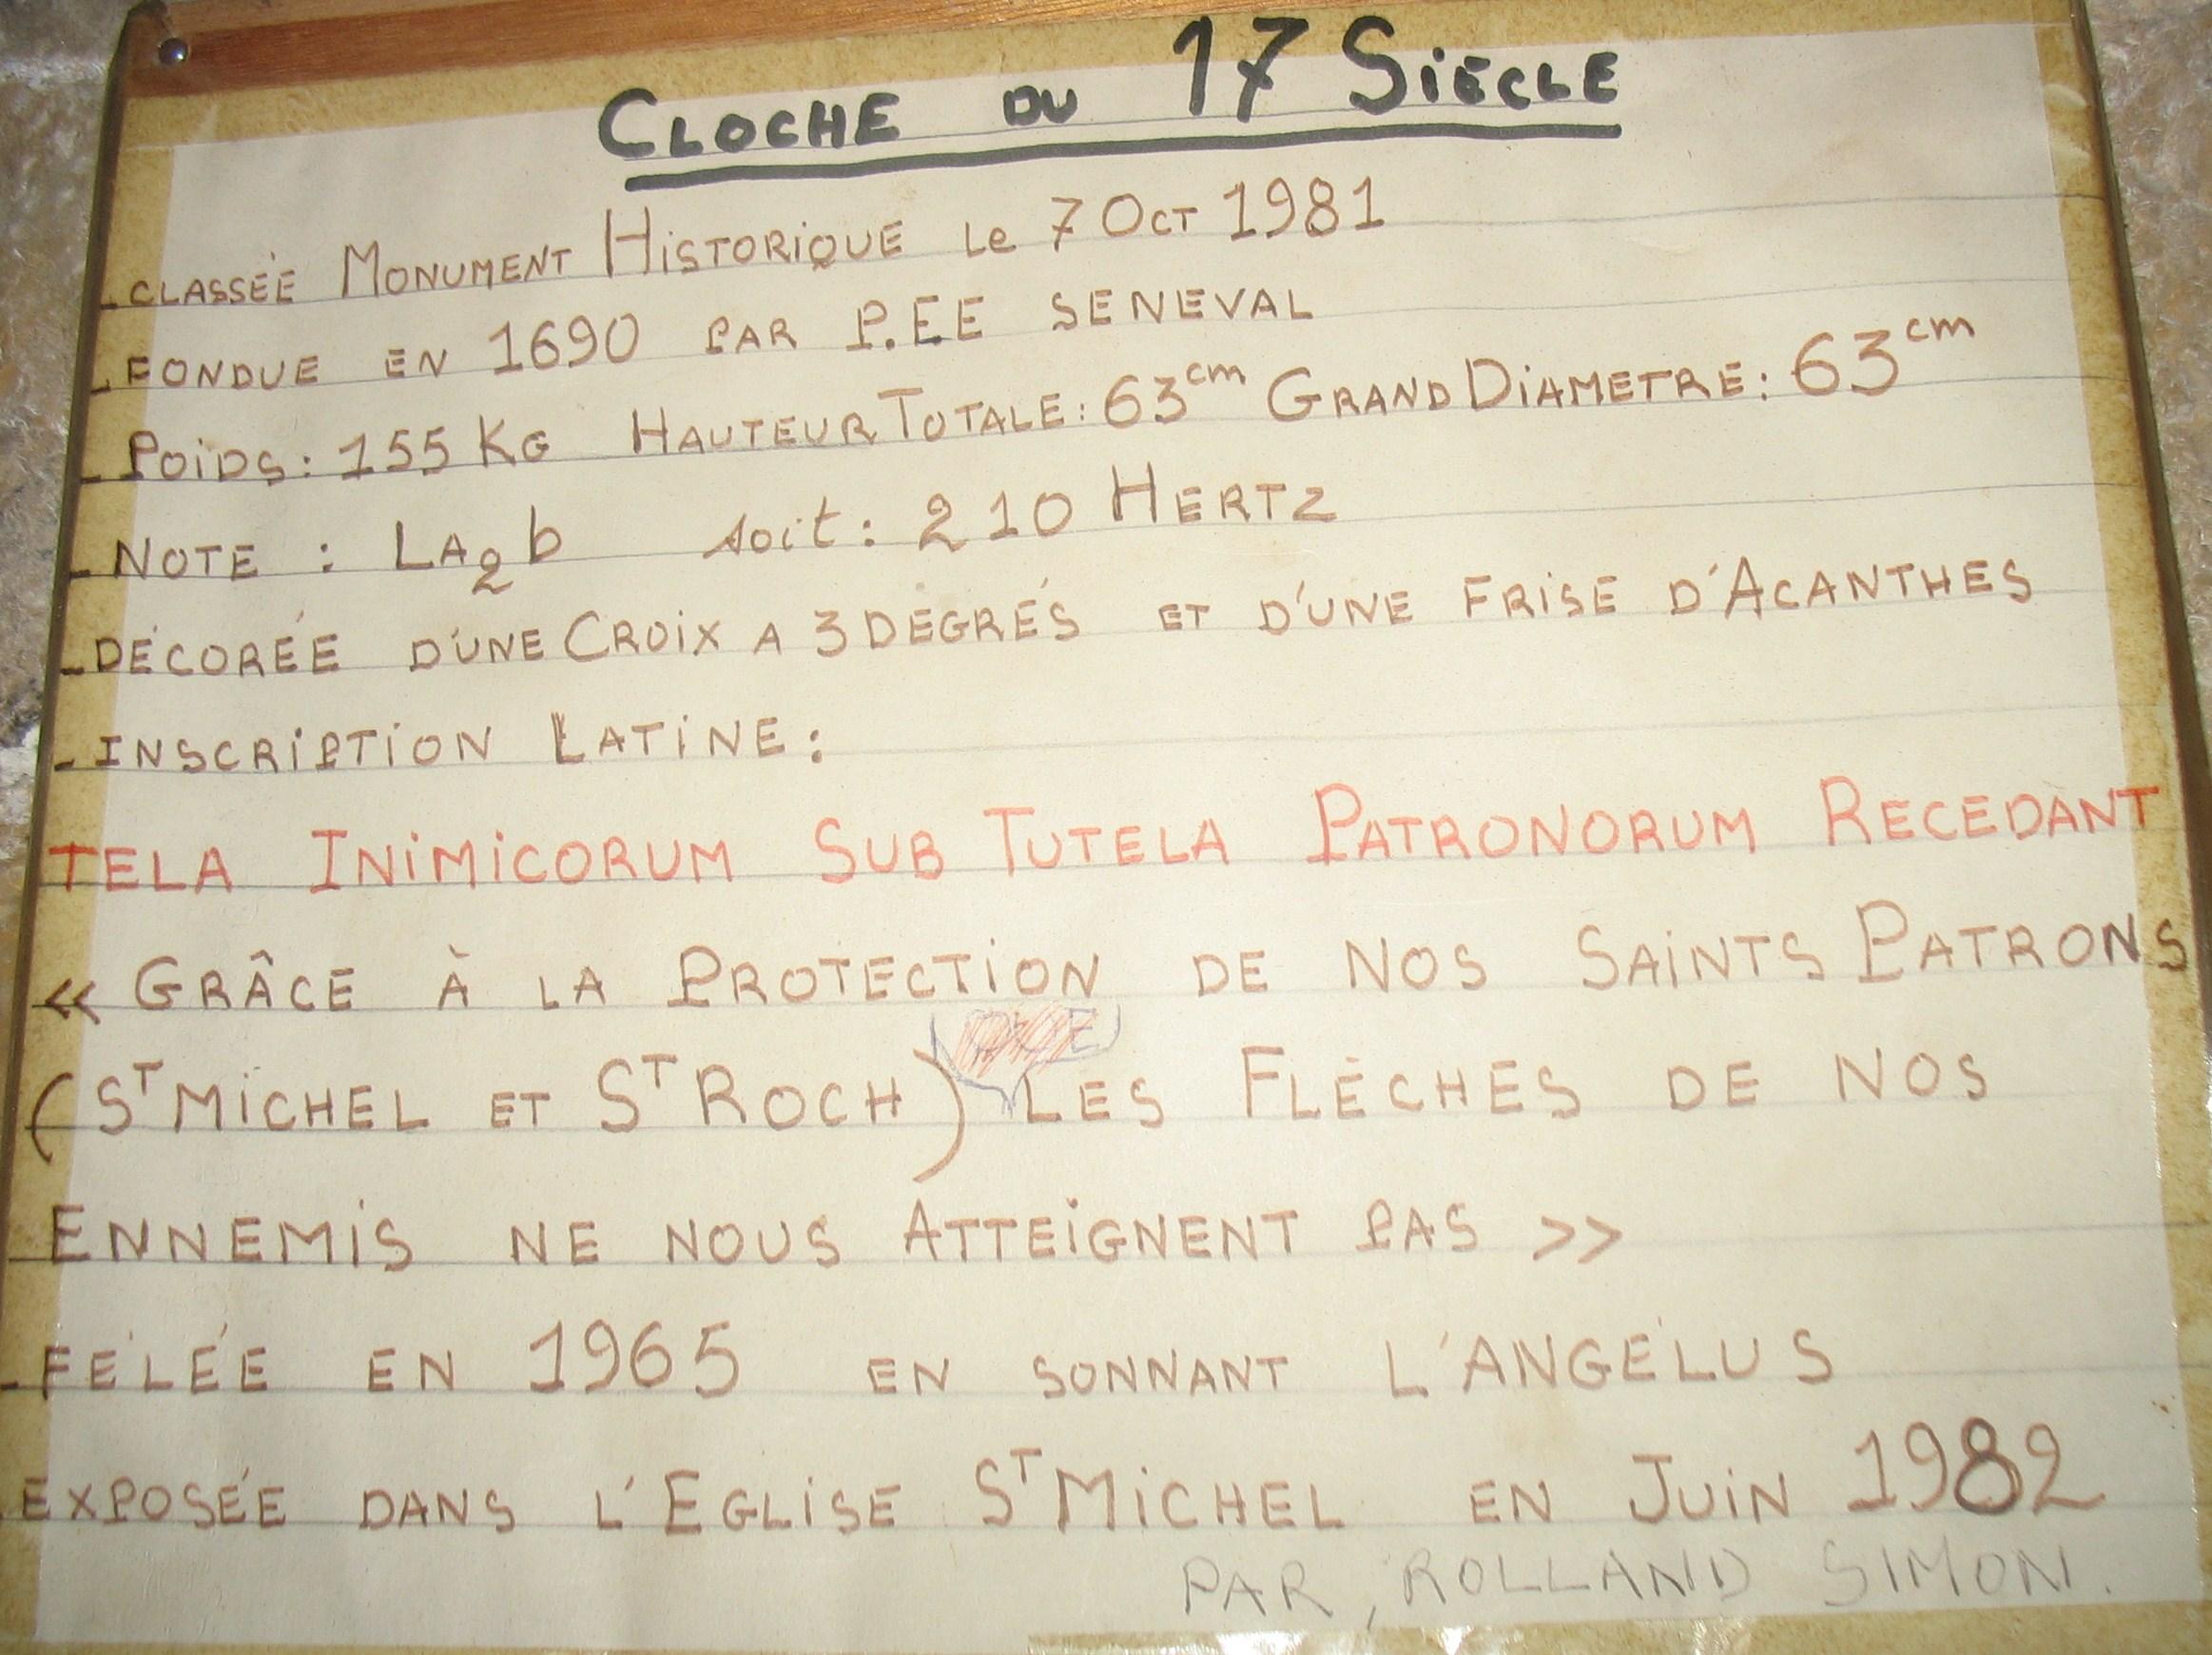 CLOCHE DU 17 SIÈCLE
- CLASSÉE MONUMENT HISTORIQUE Le 7 OCT 1981
- FONDUE EN 1690 PAR P.EE SENEVAL
- POIDS: 155 KG HAUTEUR TOTALE: 63cm GRAND DIAMETRE: 63cm
- NOTE : LA2b soit: 210 HERTZ
- DÉCORÉE D'UNE CROIX A 3 DEGRÉS ET D'UNE FRISE D'ACANTHES
- INSCRIPTION LATINE:
TELA INIMICORUM SUB TUTELA PATRONORUM RECEDANT
« GRÂCE À LA PROTECTION DE NOS SAINTS PATRONS
(ST MICHEL ET ST ROCH) LES FLÈCHES DE NOS
ENNEMIS NE NOUS ATTEIGNENT PAS »
- FÉLÉE EN 1965 EN SONNANT L'ANGÉLUS
- EXPOSÉE DANS L'EGLISE ST MICHEL EN JUIN 1982
PAR, ROLLAND SIMON.